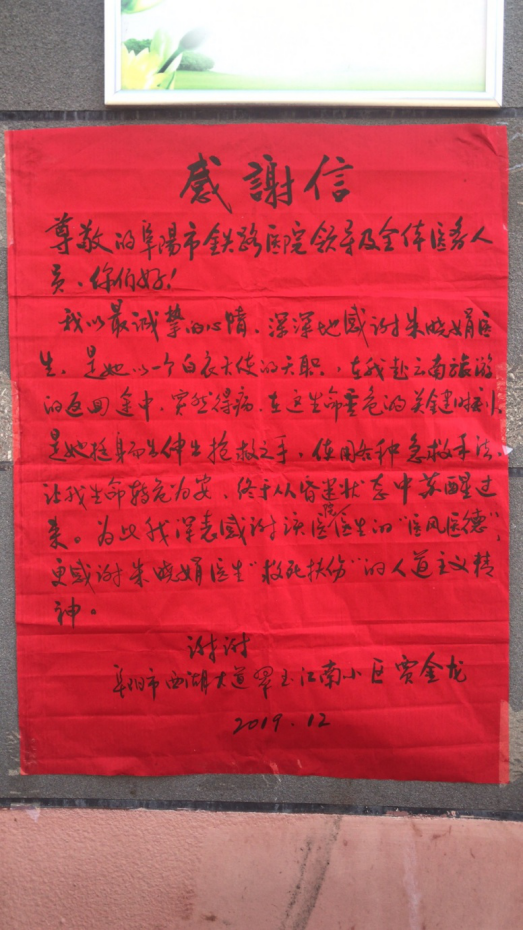 感謝信
尊敬的阜陽市铁路医院领导及全体医务人
员、你们好！
我以最诚挚的心情、深深地感谢朱晓娟医
生，是她以一个白衣天使的天职，在我赴云南旅游
的返回途中，突然得病，在这生命垂危的关键时刻，
是她挺身而出伸出抢救之手，使用各种急救手法，
让我生命转危为安，终于从昏迷状态中苏醒过
来。为此我深表感谢该医院医生的“医风医德”，
更感谢朱晓娟医生“救死扶伤”的人道主义精
神。
谢谢
阜阳市西湖大道翠玉江南小区贾金龙
2019.12